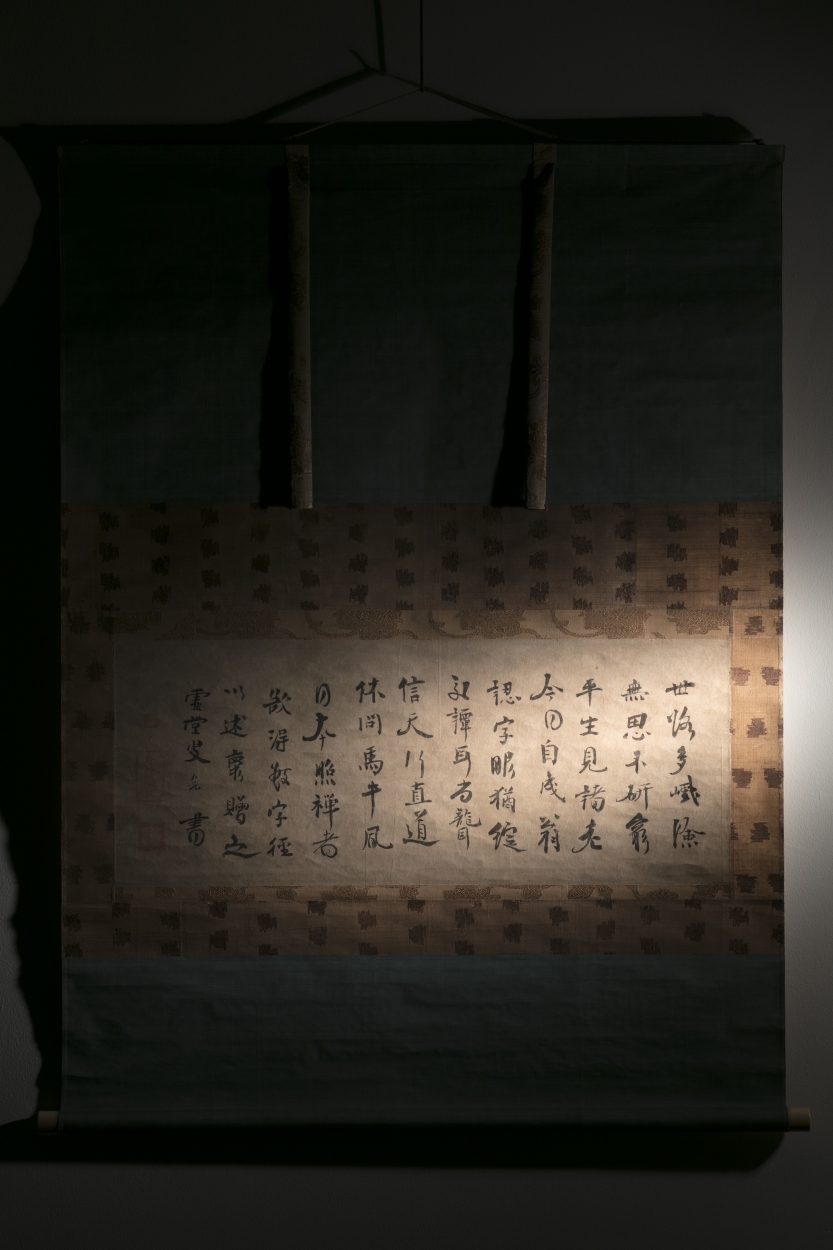 世路多巇嶮
無思不研窮
平生見諸老
今日自成翁
認字眼猶綻
交譚耳尚聾
信天行直道
休問馬牛風
日本照禅者
欲得數字徑
以述懷贈之
虛堂叟 書